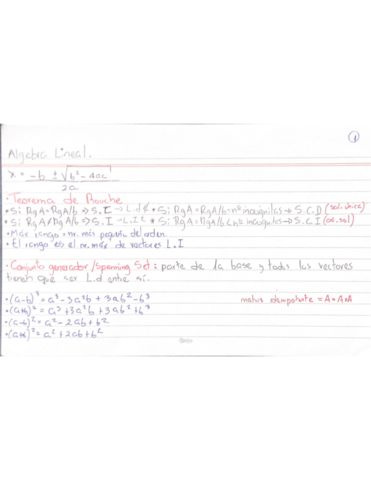 1
Algebra Lineal.
x = -b ± √b²-4ac
2a
• Teorema de Rouche
• Si RgA=RgA/b => S.I → L.d • Si RgA=RgA/b=nº incognitas → S.C.D (sol. única)
• Si RgA≠RgA/b => S.I → L.I • Si RgA=RgA/b<nº incognitas → S.C.I (∞ sol)
• Max rango = nr. más pequeño del orden.
• El rango es el nr. máx de vectores L.I
• Conjunto generador/Spanning Set: parte de la base y todos los vectores
tienen que ser L.d entre si.
• (a-b)³ = a³-3a²b+3ab²-b³
matriz idempotente = A = A·A
• (a+b)³ = a³+3a²b+3ab²+b³
• (a-b)² = a²-2ab+b²
• (a+b)² = a²+2ab+b²